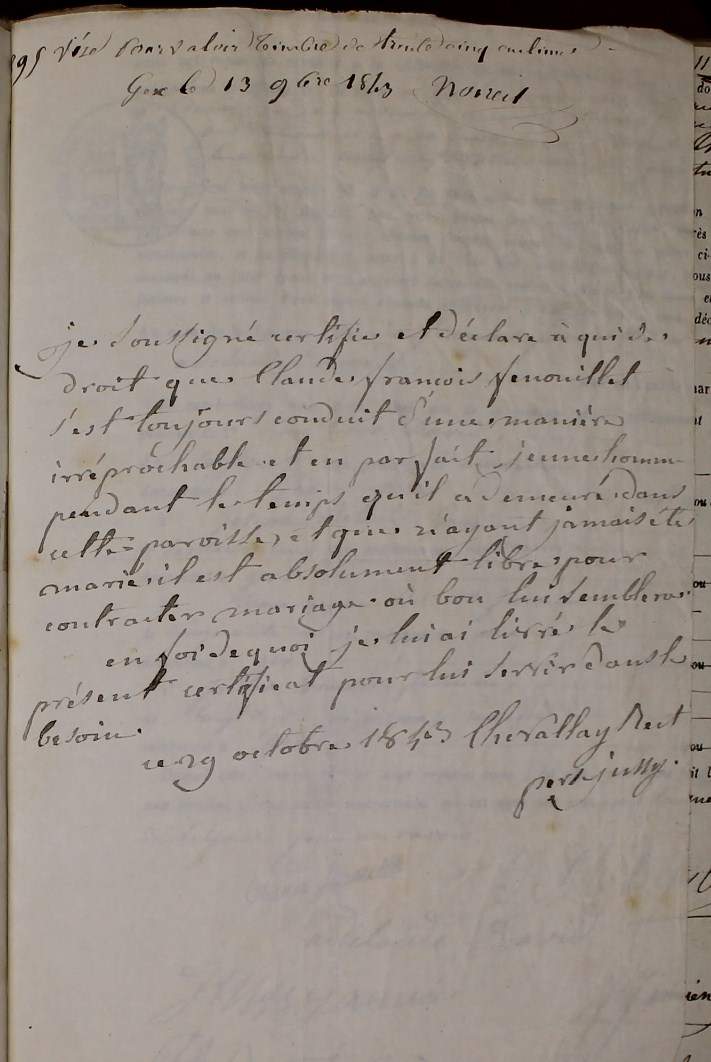 Visé pour valoir timbre de trente cinq centimes
Gex le 13 9bre 1843
je soussigné certifie et déclare à qui de
droit que Claude françois fenouillet
s'est toujours conduit d'une manière
irréprôchable et en parfait jeune homme
pendant le temps qu'il a demeuré dans
cette paroisse, et que n'ayant jamais été
marié, il est absolument libre pour
contracter mariage où bon lui semblera.
en foi de quoi je lui ai livré le
présent certificat pour lui servir dans le
besoin.
ce 29 octobre 1843 Chevallay Rect
pers jussy.